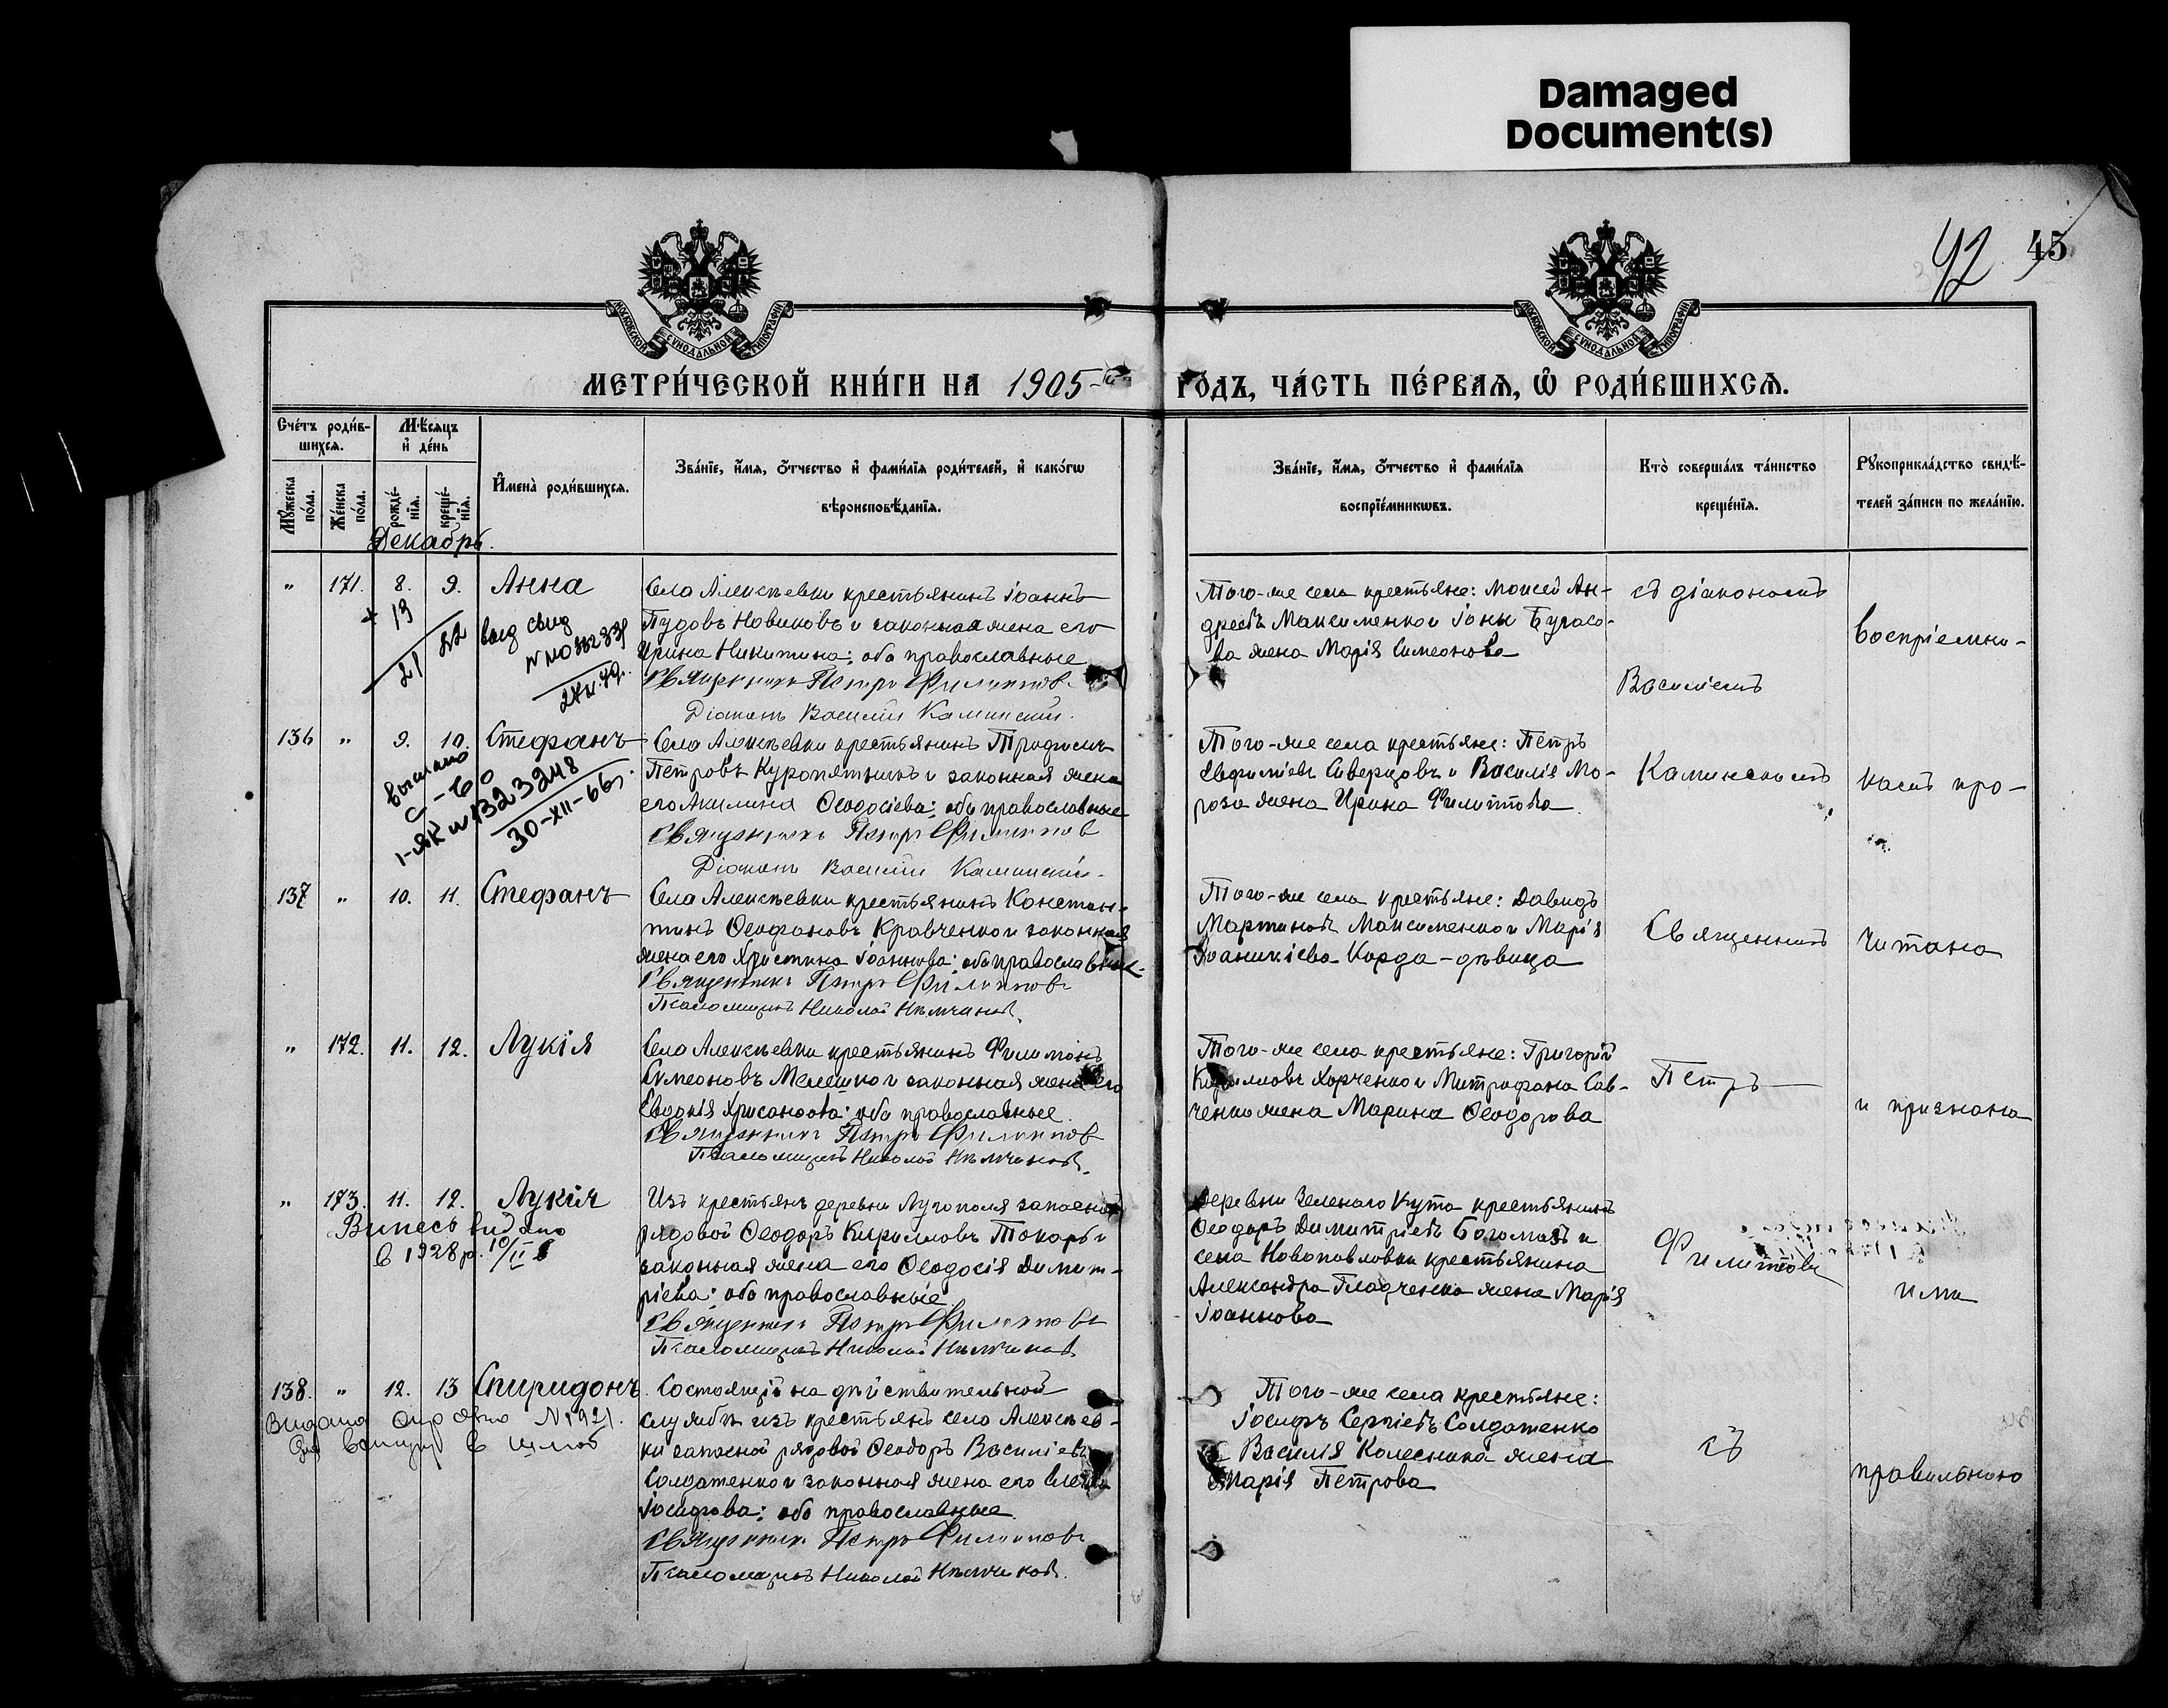 Damaged
Document(s)
92 45
МОСКОВСКОЙ СУНОДАЛЬНОЙ ТИПОГРАФІИ
МОСКОВСКОЙ СУНОДАЛЬНОЙ ТИПОГРАФІИ
МЕТРИ́ЧЕСКОЙ КНИ́ГИ НА 1905-й ГО́ДЪ, ЧА́СТЬ ПЕ́РВАЯ, Ѡ҆ РОДИ́ВШИХСЯ.
Сче́тъ роди́в-
шихся.
Мѣ́сяцъ
и҆ де́нь
Мꙋ́жеска
по́ла.
Же́нска
по́ла.
рожде́-
нїя.
креще́-
нїя.
И҆мена̀ роди́вшихся.
Зва́нїе, и҆́мя, ѻ҆́тчество и҆ фами́лїя роди́телей, и҆ како́гѡ
вѣроисповѣ́данїя.
Зва́нїе, и҆́мя, ѻ҆́тчество и҆ фами́лїя
воспрїе́мникѡвъ.
Кто̀ соверша́лъ та́инство
креще́нїя.
Рꙋкоприкла́дство свидѣ́-
телей за́писи по жела́нїю.
Декабрь.
" 171. 8. 9. Анна
Села Алексѣевки крестьянинъ Іоаннъ
Пудовъ Новиковъ и законная жена его
Ирина Никитина; оба православные
Священникъ Петръ Филипповъ
Діаконъ Василій Каминскій.
Того-же села крестьяне: Моисей Ан-
дреевъ Максименко и Іоны Бугаё-
ва жена Марія Симеонова
съ діакономъ
Василіемъ
воспріемни-
+ 19
выд свид
136 " 9. 10. Стефанъ
Села Алексѣевки крестьянинъ Трофимъ
Петровъ Куропятникъ и законная жена
его Акилина Ѳеодосіева; оба православные
Священникъ Петръ Филипповъ
Діаконъ Василій Каминскій.
Того-же села крестьяне: Петръ
Евфиміевъ Сиверцовъ и Василія Мо-
роза жена Ирина Филиппова
Каминскимъ
камъ про-
1-ЯК № 1323248
30-XII-66г.
137 " 10. 11. Стефанъ
Села Алексѣевки крестьянинъ Констан-
тинъ Ѳеофановъ Кравченко и законная
жена его Христина Іоаннова; оба православные.
Священникъ Петръ Филипповъ
Псаломщикъ Николай Нѣмчиновъ.
Того-же села крестьяне: Давидъ
Мартиновъ Максименко и Марія
Іоаникіева Корда - дѣвица
Священникъ
читана
" 172. 11. 12. Лукія
Села Алексѣевки крестьянинъ Филимонъ
Симеоновъ Мелешко и законная жена его
Евдокія Хрисанѳова; оба православные.
Священникъ Петръ Филипповъ
Псаломщикъ Николай Нѣмчиновъ.
Того-же села крестьяне: Григорій
Кирилловъ Харченко и Митрофана Сав-
ченко жена Марина Ѳеодорова
Петръ
и признана
" 173. 11. 12. Лукія
Випесь видано
в 1928 р. 10/II
Изъ крестьянъ деревни Лугополя запасный
рядовой Ѳеодоръ Кирилловъ Токарь и
законная жена его Ѳеодосія Димит-
ріева; оба православные
Священникъ Петръ Филипповъ
Псаломщикъ Николай Нѣмчиновъ.
Деревни Зеленаго Кута крестьянинъ
Ѳеодоръ Димитріевъ Богомазъ и
села Новопавловки крестьянина
Александра Гладченка жена Марія
Іоаннова
Филипповъ
ими
138. " 12. 13 Спиридонъ.
Видана № 921.
Состоящій на дѣйствительной
службѣ изъ крестьянъ села Алексѣев-
ки запасной рядовой Ѳеодоръ Василіевъ
Солдатенко и законная жена его Елена
Іосифова; оба православные.
Священникъ Петръ Филипповъ
Псаломщикъ Николай Нѣмчиновъ.
Того-же села крестьяне:
Іосифъ Сергіевъ Солдатенко
и Василія Колесника жена
Марія Петрова
съ
правильною